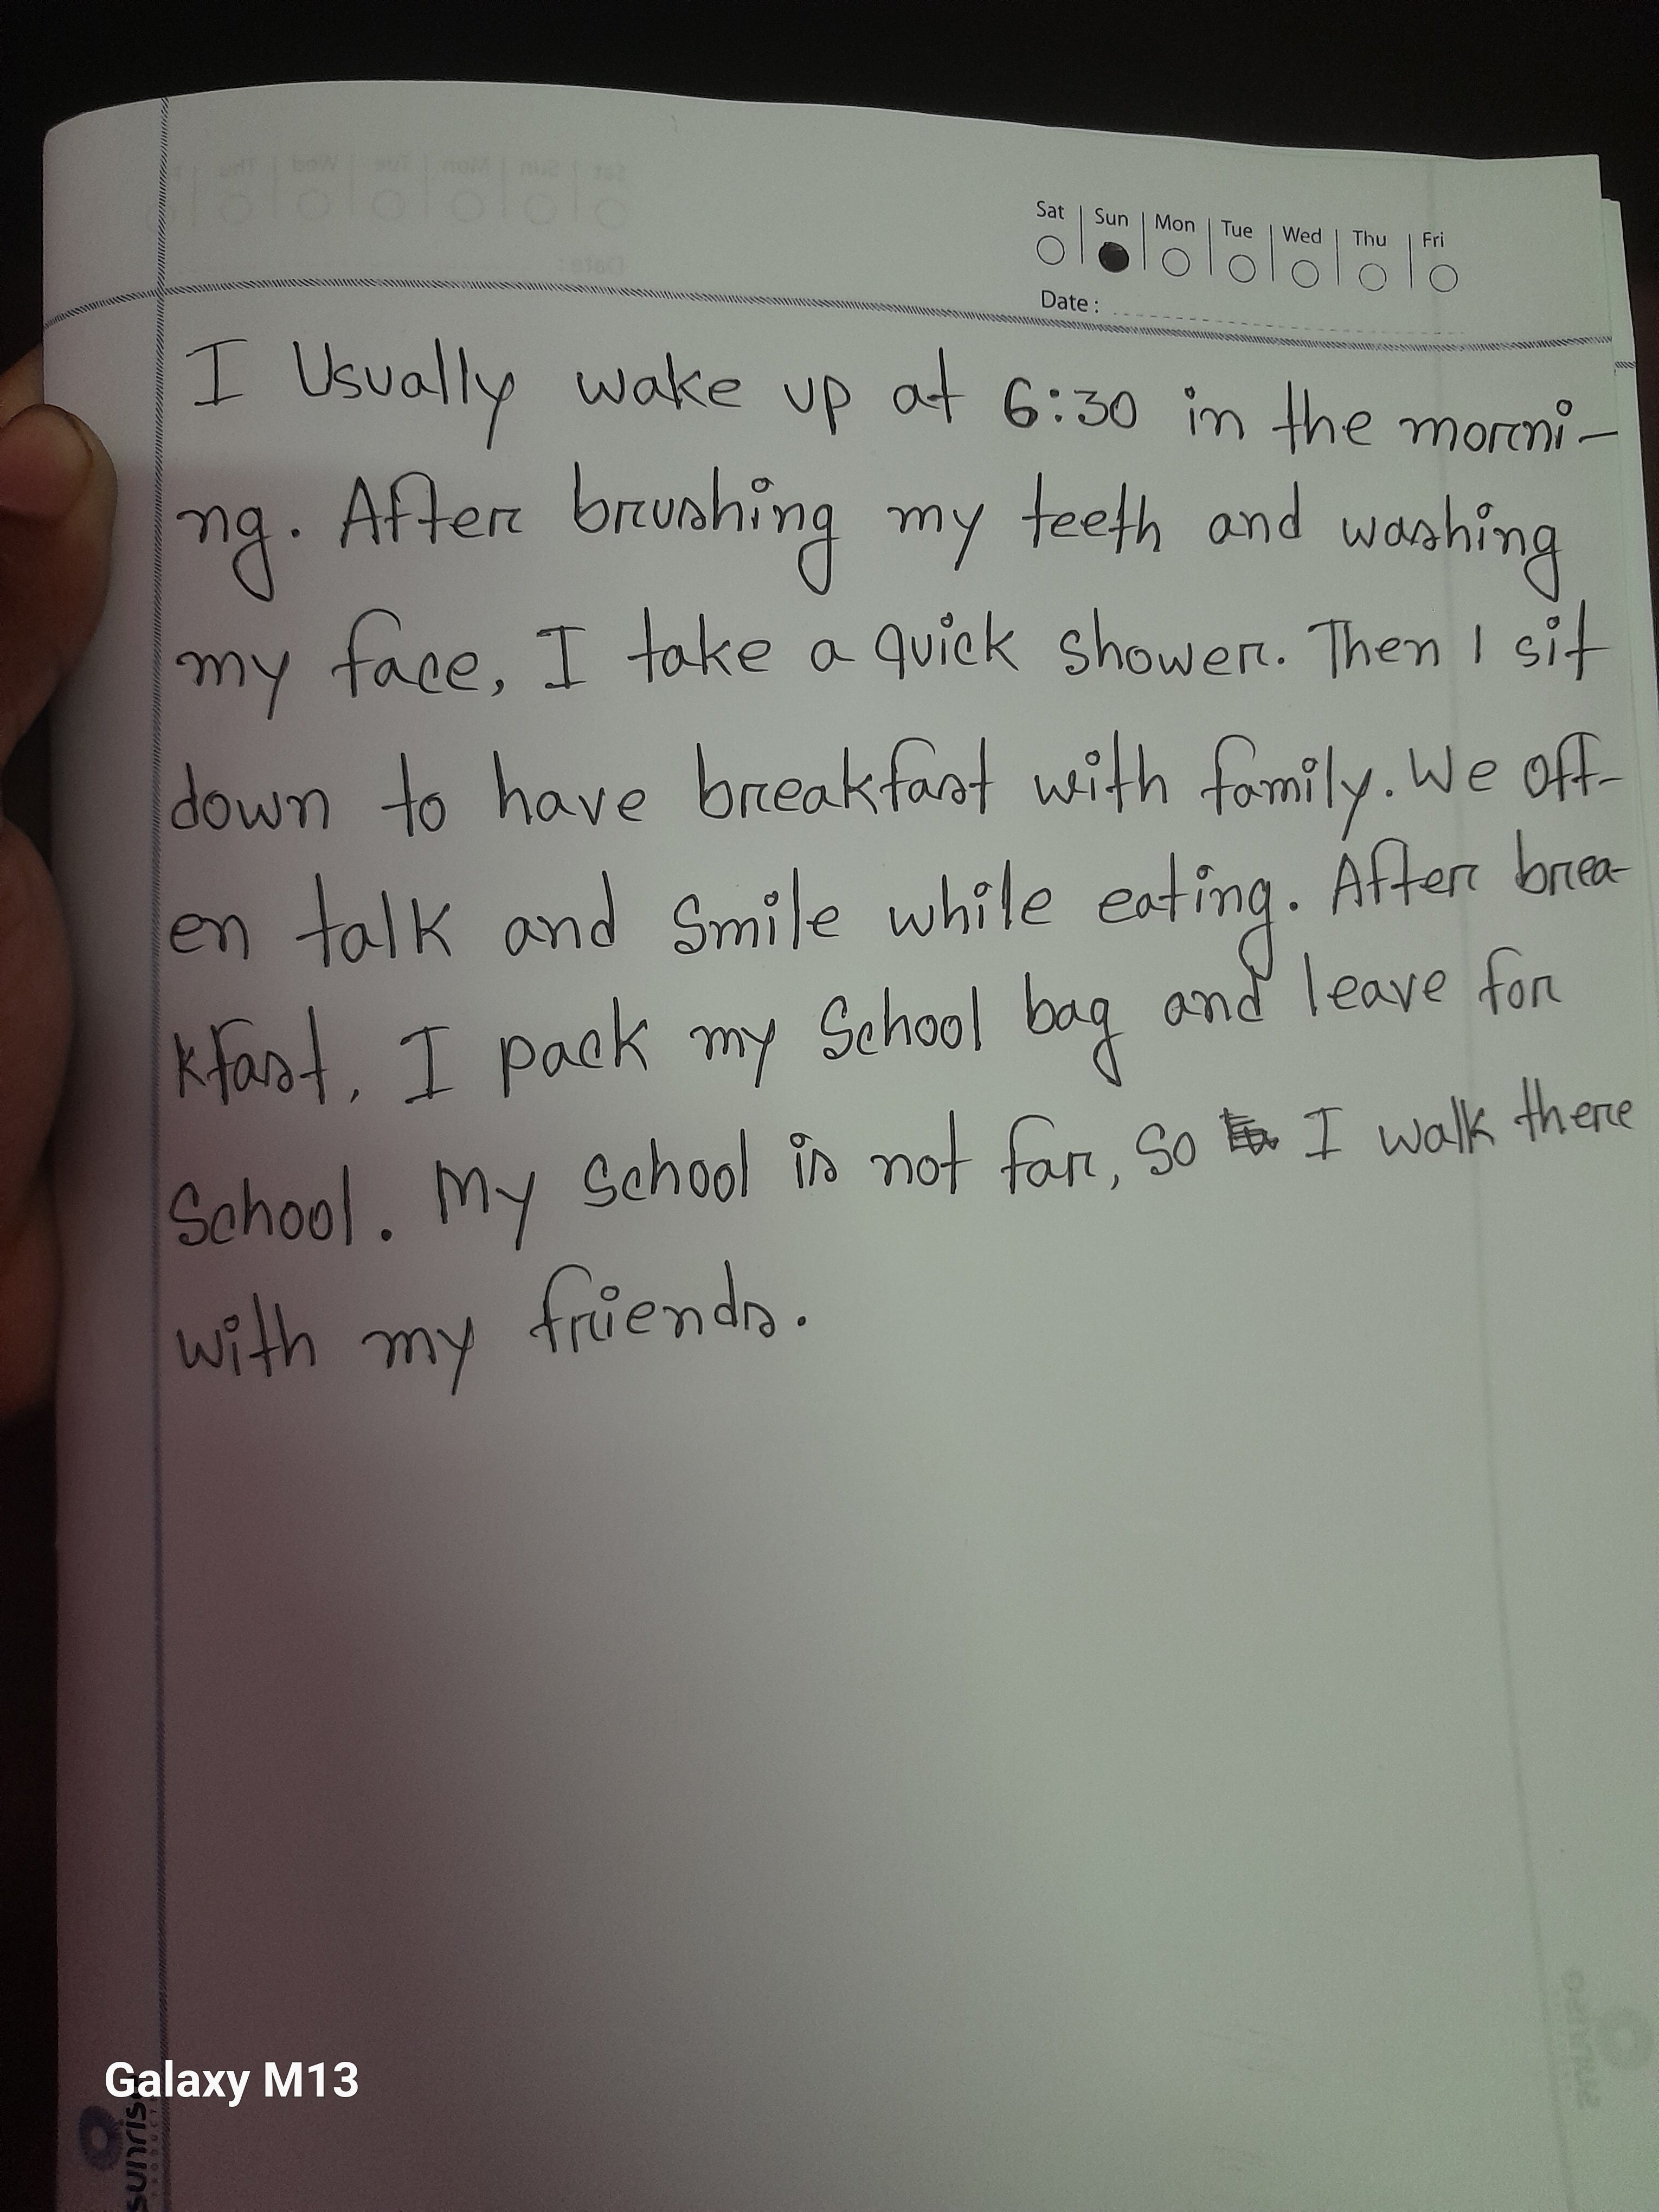 Sat Sun Mon Tue Wed Thu Fri
Date :
I Usually wake up at 6:30 in the morni-
ng. After brushing my teeth and washing
my face, I take a quick shower. Then I sit
down to have breakfast with family. We oft-
en talk and Smile while eating. After brea-
kfast, I pack my School bag and leave for
School. My School is not far, So I walk there
with my friends.
Galaxy M13
sunrise